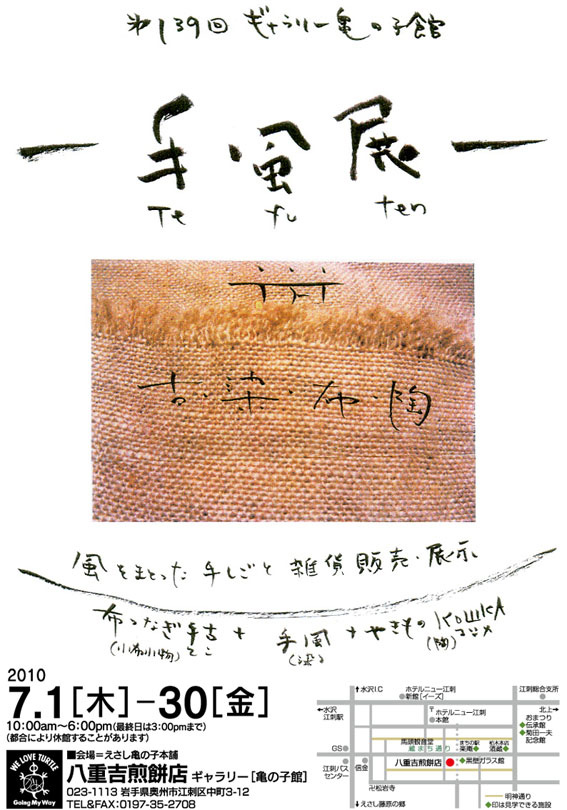 第139回 ギャラリー亀の子館
手風展
Te fu ten
古・染・布・陶
風をまとった手しごと 雑貨販売・展示
布つなぎ手古 + 手風 + やきもの KOШKA
(小布小物) てこ (染) (陶) コシカ
2010
7.1[木]–30[金]
10:00am〜6:00pm(最終日は3:00pmまで)
(都合により休館することがあります)
WE LOVE TURTLE
Going My Way
■会場=えさし亀の子本舗
八重吉煎餅店 ギャラリー[亀の子館]
023-1113 岩手県奥州市江刺区中町3-12
TEL&FAX:0197-35-2708
↑水沢I.C
ホテルニュー江刺
新館[イーズ]
江刺総合支所
←水沢
江刺駅
〒
ホテルニュー江刺
本館
北上→
おまつり
伝承館
菊田一夫
記念館
馬頭観音堂
蔵まち通り
まちの駅
栃木本店
酒蔵
GS
江刺バス
センター
信金
八重吉煎餅店
黒壁ガラス館
卍松岩寺
↓えさし藤原の郷
明神通り
◆印は見学できる施設